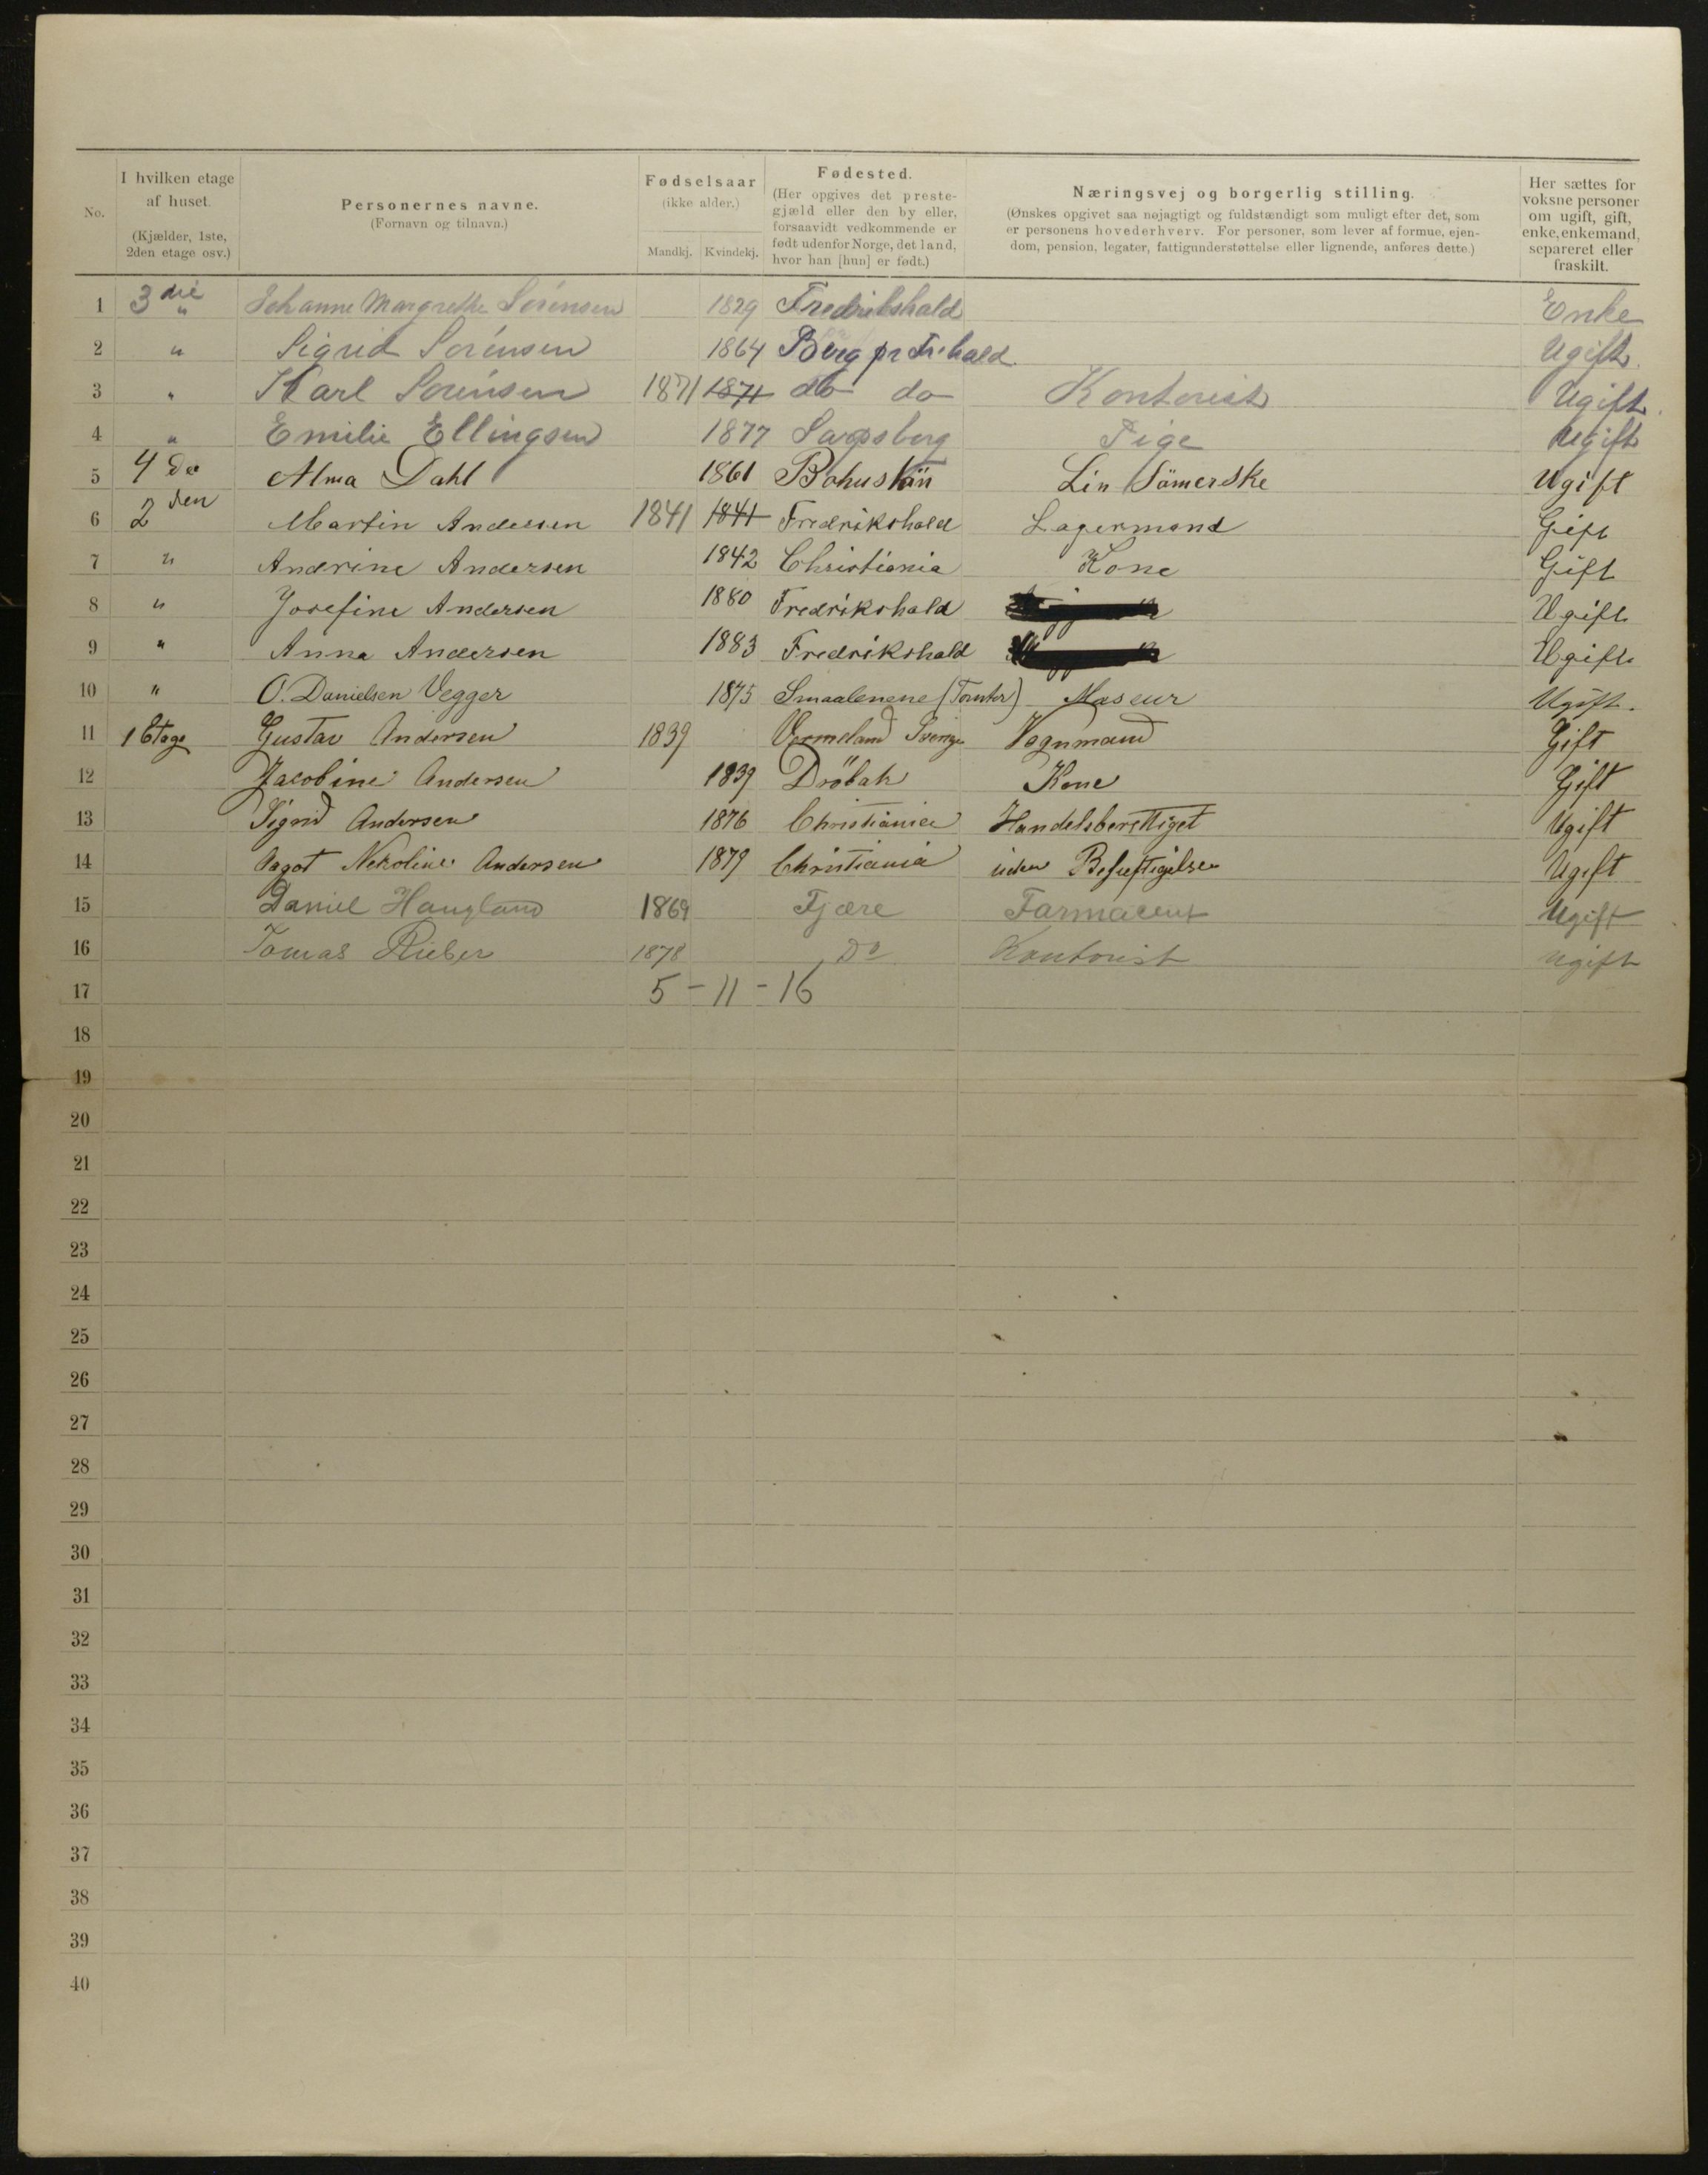 No. I hvilken etage af huset. (Kjælder, 1ste, 2den etage osv.) Personernes navne. (Fornavn og tilnavn.) Fødselsaar (ikke alder.) Mandkj. Kvindekj. Fødested. (Her opgives det prestegjæld eller den by eller, forsaavidt vedkommende er født udenfor Norge, det land, hvor han [hun] er født.) Næringsvej og borgerlig stilling. (Ønskes opgivet saa nøjagtigt og fuldstændigt som muligt efter det, som er personens hovederhverv. For personer, som lever af formue, ejendom, pension, legater, fattigunderstøttelse eller lignende, anføres dette.) Her sættes for voksne personer om ugift, gift, enke, enkemand, separeret eller fraskilt.
1 3die " Johanne Margrethe Sørensen 1829 Fredrikshald Enke
2 " Sigrid Sørensen 1864 Berg pr Fr.hald Ugift.
3 " Karl Sørensen 1871 1871 do do Kontorist Ugift.
4 " Emilie Ellingsen 1877 Sarpsborg Pige Ugift
5 4de Alma Dahl 1861 Bohuslän Lin Sömerske Ugift
6 2den Martin Andersen 1841 1841 Fredrikshald Lagermand Gift
7 " Andrine Andersen 1842 Christiania Kone Gift
8 " Josefine Andersen 1880 Fredrikshald Ugift
9 " Anna Andersen 1883 Fredrikshald Ugift
10 " O. Danielsen Vegger 1875 Smaalenene (Tomter) Maseur Ugift.
11 1 Etage Gustav Andersen 1839 Vermeland Sverige Vognmand Gift
12 Jacobine Andersen 1839 Dröbak Kone Gift
13 Sigrid Andersen 1876 Christiania Handelsberettiget Ugift
14 Aagot Nekoline Andersen 1879 Christiania uden Beskjeftigelse Ugift
15 Daniel Haugland 1869 Fjære Farmaceut Ugift
16 Tomas Rieber 1878 Do Kontorist ugift
17 5 - 11 - 16
18
19
20
21
22
23
24
25
26
27
28
29
30
31
32
33
34
35
36
37
38
39
40